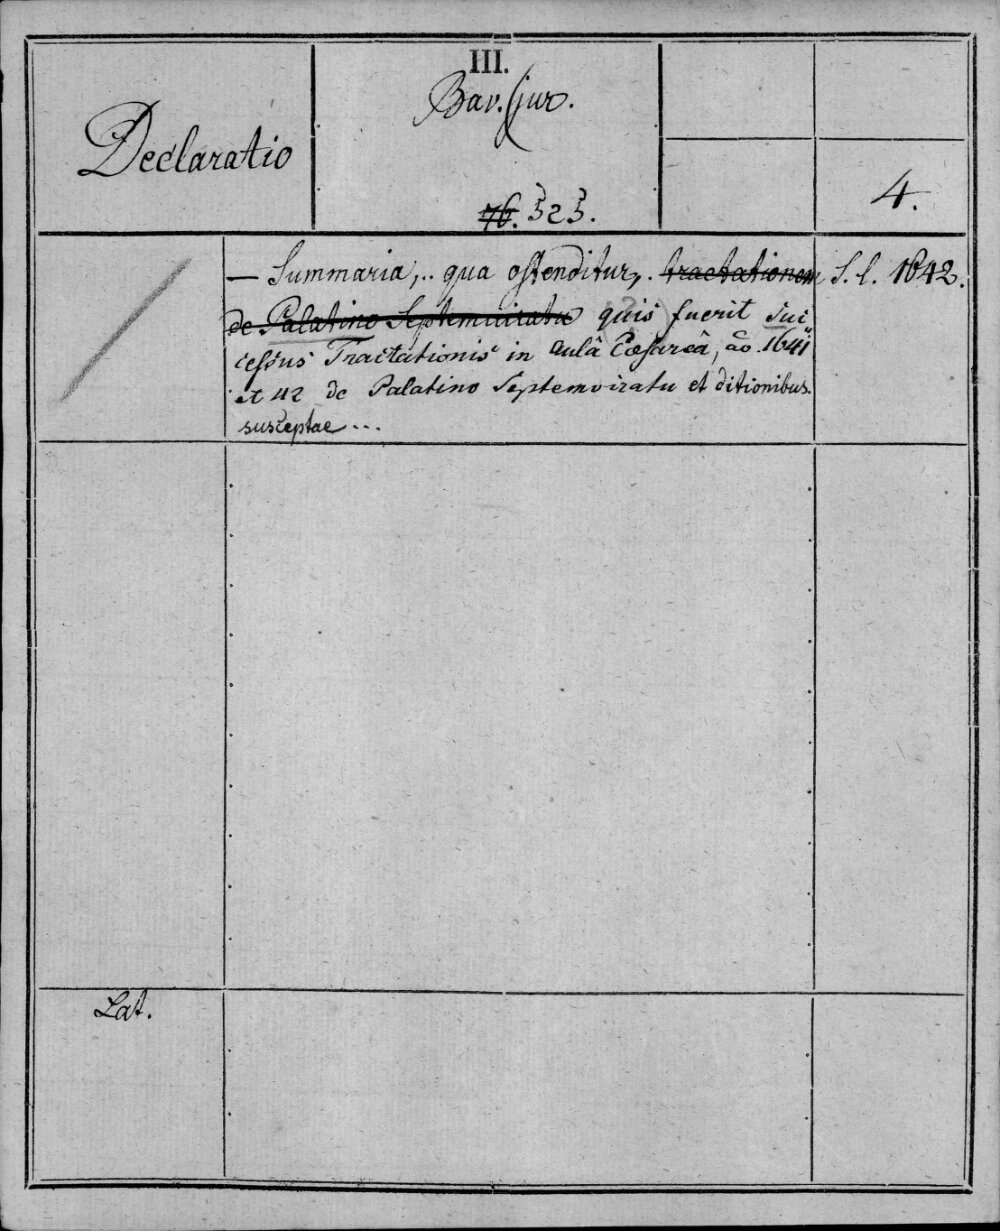 III.
Bav. jur.
Declaratio
4.
76. 525.
— Summaria,.. qua ostenditur,. tractationem S. l. 1642.
de Palatino Septemviratu quis fuerit suc
cessus Tractationis in aulâ Caesareâ, ao 1641
et 42 de Palatino Septemviratu et ditionibus.
susceptae...
Lat.